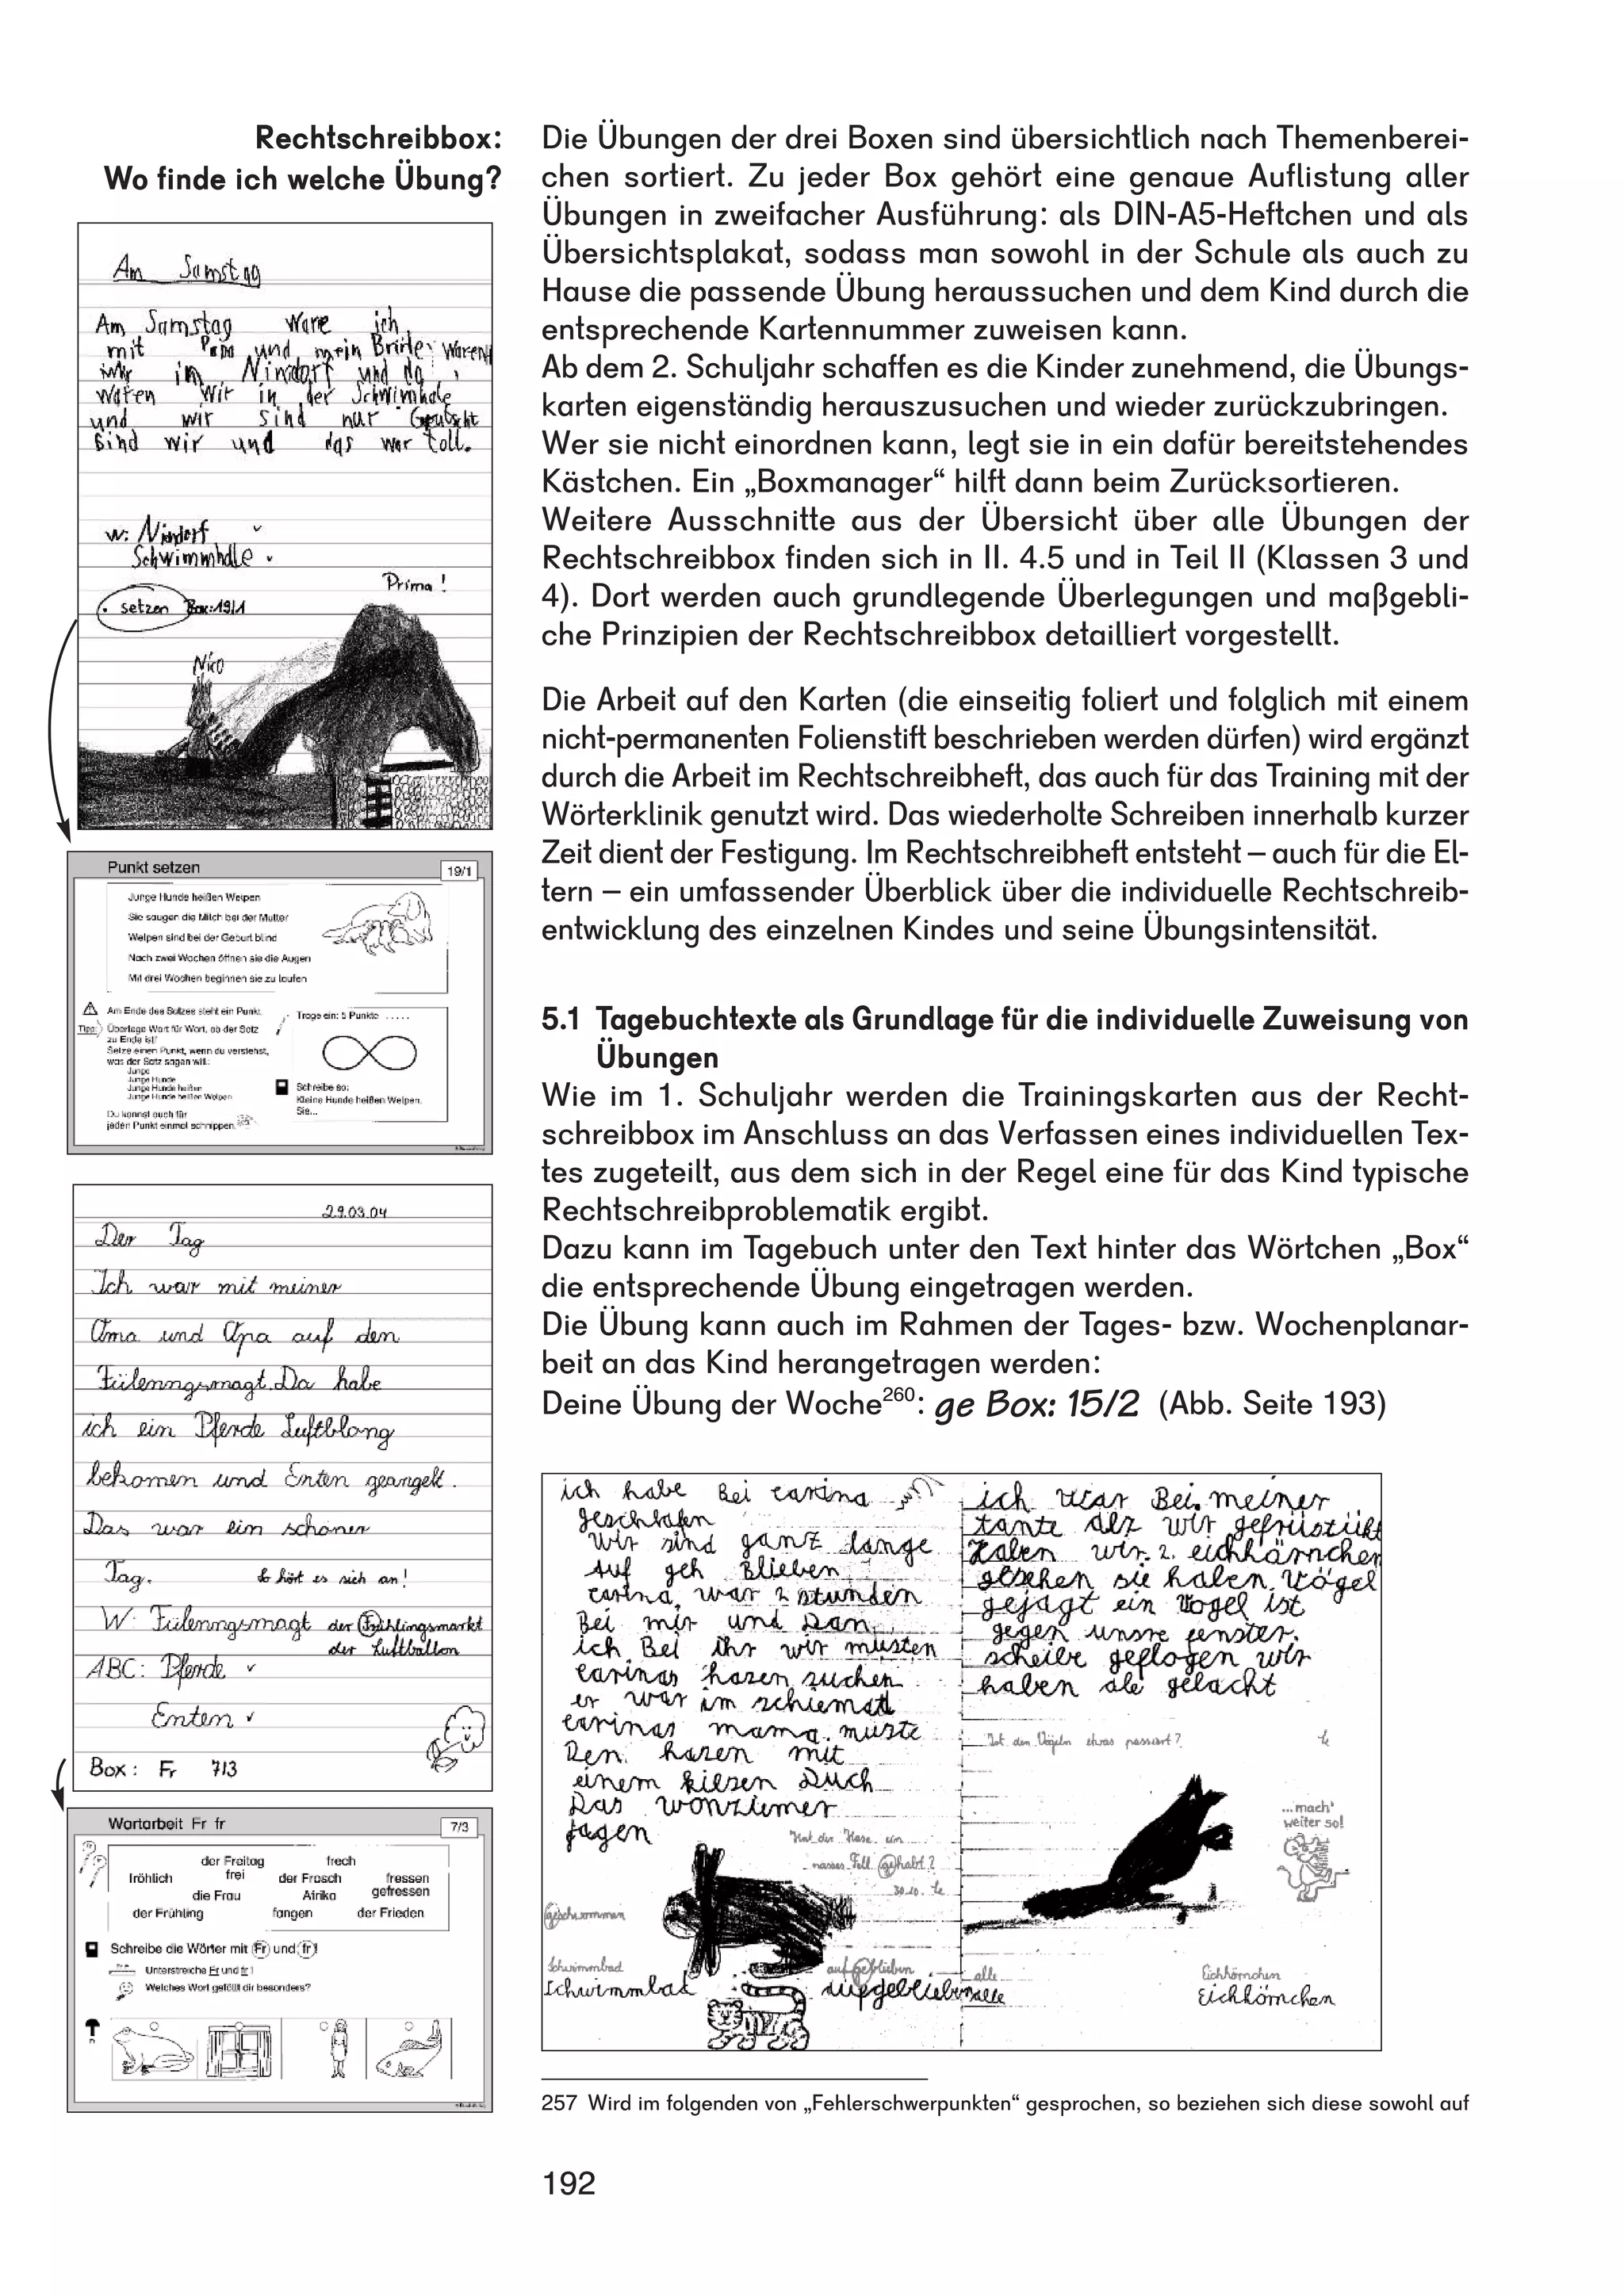 Rechtschreibbox:
Wo finde ich welche Übung?
Am Samstag
Am Samstag ware ich
mit Papa und mein Brüde waren
wir in Nindorf und da
waren wir in der Schwimhale
und wir sind nur Geutscht
Sind wir und das war toll.
w: Nindorf
Schwimmhalle
Prima!
. setzen Box: 19/1
Nico
Punkt setzen 19/1
Junge Hunde heißen Welpen
Sie saugen die Milch bei der Mutter
Welpen sind bei der Geburt blind
Nach zwei Wochen öffnen sie die Augen
Mit drei Wochen beginnen sie zu laufen
Am Ende des Satzes steht ein Punkt.
Tipp: Überlege Wort für Wort, ob der Satz
zu Ende ist!
Setze einen Punkt, wenn du verstehst,
was der Satz sagen will.
Junge
Junge Hunde
Junge Hunde heißen
Junge Hunde heißen Welpen
Du kannst auch für
jeden Punkt einmal schnippen.
Trage ein: 5 Punkte .....
Schreibe so:
Kleine Hunde heißen Welpen.
Sie...
29.03.04
Der Tag
Ich war mit meiner
Oma und Opa auf den
Fülenngsmagt. Da habe
ich ein Pferde Luftblong
bekomen und Enten geangelt.
Das war ein schöner
Tag. So hört es sich an!
W: Fülenngsmagt der Frühlingsmarkt
der Luftballon
ABC: Pferde
Enten
Box: Fr 7/3
Wortarbeit Fr fr 7/3
der Freitag frech
fröhlich frei der Frosch fressen
die Frau Afrika gefressen
der Frühling fangen der Frieden
Schreibe die Wörter mit Fr und fr!
Unterstreiche Fr und fr!
Welches Wort gefällt dir besonders?
Die Übungen der drei Boxen sind übersichtlich nach Themenberei-
chen sortiert. Zu jeder Box gehört eine genaue Auflistung aller
Übungen in zweifacher Ausführung: als DIN-A5-Heftchen und als
Übersichtsplakat, sodass man sowohl in der Schule als auch zu
Hause die passende Übung heraussuchen und dem Kind durch die
entsprechende Kartennummer zuweisen kann.
Ab dem 2. Schuljahr schaffen es die Kinder zunehmend, die Übungs-
karten eigenständig herauszusuchen und wieder zurückzubringen.
Wer sie nicht einordnen kann, legt sie in ein dafür bereitstehendes
Kästchen. Ein „Boxmanager“ hilft dann beim Zurücksortieren.
Weitere Ausschnitte aus der Übersicht über alle Übungen der
Rechtschreibbox finden sich in II. 4.5 und in Teil II (Klassen 3 und
4). Dort werden auch grundlegende Überlegungen und maßgebli-
che Prinzipien der Rechtschreibbox detailliert vorgestellt.
Die Arbeit auf den Karten (die einseitig foliert und folglich mit einem
nicht-permanenten Folienstift beschrieben werden dürfen) wird ergänzt
durch die Arbeit im Rechtschreibheft, das auch für das Training mit der
Wörterklinik genutzt wird. Das wiederholte Schreiben innerhalb kurzer
Zeit dient der Festigung. Im Rechtschreibheft entsteht – auch für die El-
tern – ein umfassender Überblick über die individuelle Rechtschreib-
entwicklung des einzelnen Kindes und seine Übungsintensität.
5.1 Tagebuchtexte als Grundlage für die individuelle Zuweisung von
Übungen
Wie im 1. Schuljahr werden die Trainingskarten aus der Recht-
schreibbox im Anschluss an das Verfassen eines individuellen Tex-
tes zugeteilt, aus dem sich in der Regel eine für das Kind typische
Rechtschreibproblematik ergibt.
Dazu kann im Tagebuch unter den Text hinter das Wörtchen „Box“
die entsprechende Übung eingetragen werden.
Die Übung kann auch im Rahmen der Tages- bzw. Wochenplanar-
beit an das Kind herangetragen werden:
Deine Übung der Woche260: ge Box: 15/2 (Abb. Seite 193)
ich habe Bei carina
geschlafen
wir sind ganz lange
auf geh Blieben
carina war 2 stunden
Bei mir und Dan
ich Bei ihr wir musten
carinas hasen suchen
er war im schiemat
carinas mama muste
Den hasen mit
einem kiesen Duch
Das wonziemer
jagen
Hat der Hase ein
nasses Fell gehabt?
30.10. Le
geschwommen
Schwimmbad
Schwimmbad
aufgeblieben
aufgeblieben
ich war Bei meiner
tante alz wir gefrüstükt
Haben wir 2 eichhärnchen
gesehen sie haben Vögel
gejagt ein Vogel ist
gegen unsre fenster
scheibe geflogen wir
haben ale gelacht
Ist den Vögeln etwas passiert? Le
...mach'
weiter so!
alle
alle
Eichhörnchen
Eichhörnchen
257 Wird im folgenden von „Fehlerschwerpunkten“ gesprochen, so beziehen sich diese sowohl auf
192